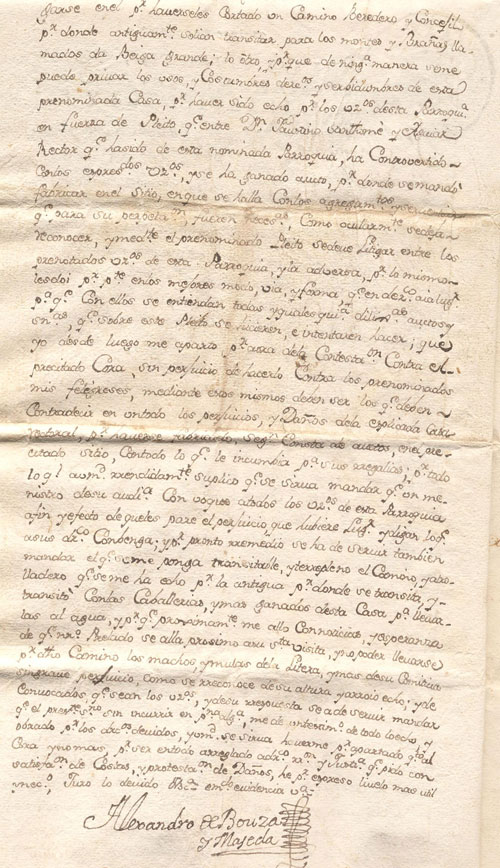 en el pr. haverseles Cortado un Camino Heredero y Concegil
pr. donde antiguamte. solian transitar para los montes y Brañas lla-
mados da Beiga grande; lo otro, y pr. que de ninga. manera se me
puede privar los usos, y Costumbres deros. y serbidumbres de esta
prenominada Casa, pr. haver sido echo pr. los vzos. desta Parroqa.
en fuerza de Pleito, qe. entre Dn. Faustino Santhome y Aguiar
Rector qe. ha sido de esta nominada Parroquia, ha Controvertido
Con los expresdos. vzos. y se ha ganado auto, pr. donde se mandó
fabricar en el Sitio, en que se halla Con los agregamtos.
qe. para su perpeta. fueren neces. Como ocularmte. se deja
reconocer, y medte. el prenominado Pleito se deve Litigar entre los
prenotados vzos. de esta Parroquia, y la adversa, pr. lo mismo
les doi pr. pte. en los mejores medo. via, y forma qe. en dero. aia lugr.
pa. qe. Con ellos se entiendan todas y quales qa. dilixas. autos y
qe. sobre este Pleito se hicieren, e intentaren hacer; que
yo desde luego me aparto pr. aora de la Contestaon. Contra el
precitado Cura, sin perjuicio de hacerlo Contra los prenominados
mis feligreses, mediante estos mismos deben ser los qe. deben
Contradecir en un todo los perjuicios, y Daños de la explicada Casa
Rectoral, pr. haverse Segn. Consta de autos, en el pre-
citado sitio, Con todo lo qe. le incumbia pa. sus rregalias, pr. tado
lo ql. a vmd. rrendidamte. suplico qe. se sirva mandar qe. un me-
nistro de su audia. Con voque atodos los vzos. de esta Parroquia
afin y efecto de queles pare el perjuicio que hubiere Lugr. y digan lo qe.
a sus dros. Combenga; y pr. pronto rremedio se ha de servir tambien
mandar el qe. se me ponga transitable, y terrepleno el Camino, y atro-
lladero qe. se me ha echo pr. la antigua pr. donde se transita, y
transitó Con las Caballerias, y mas ganados desta Casa pa. lleva-
las al agua, y pr. qe. me allo Con noticias, y esperanza
de qe. nro. Prelado se alla prosimo a su sta. visita, y no poder llevarse
pr. dho. Camino los machos, y mulas de la Litera, y mas de su Comitiva
sin grave perjuicio, como se rreconoce de su altura y arroio echo; y de
Convocados qe. sean los vzos. y de su rrespuesta se a de servir mandar
qe. el presente sno. sin incurrir en pena alga. me dé un testimo. de todo lo echo y
obrado pr. los dros. devidos, y vmd. se sirva haverme pr. apartado qto. al
Cura y no mas, pr. ser en todo arreglado a dro. rn. y Justa. qe. pido con
satisfan. de Costas, y protesta. de Daños, he pr. expreso lluelo mas util
neco. Juro lo devido
Alexandro de Bouza
y Maseda